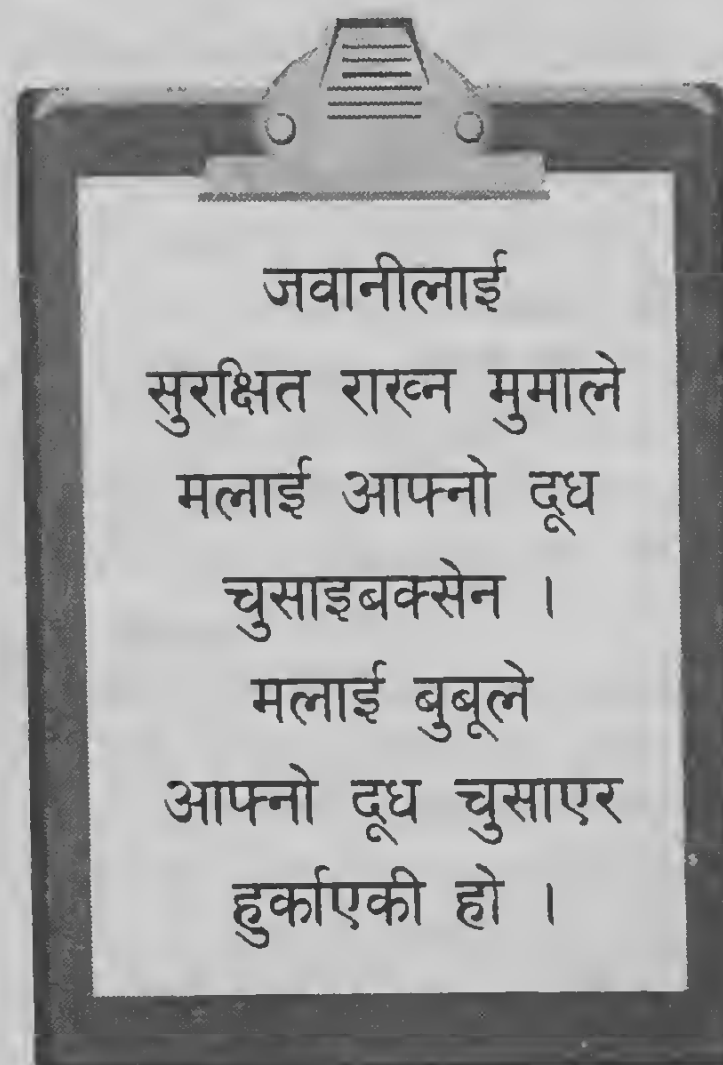 जवानीलाई
सुरक्षित राख्न मुमाले
मलाई आफ्नो दूध
चुसाइबक्सेन ।
मलाई बुबूले
आफ्नो दूध चुसाएर
हुर्काएकी हो ।